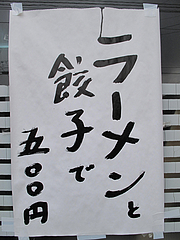 ラーメンと
餃子で
五〇〇円